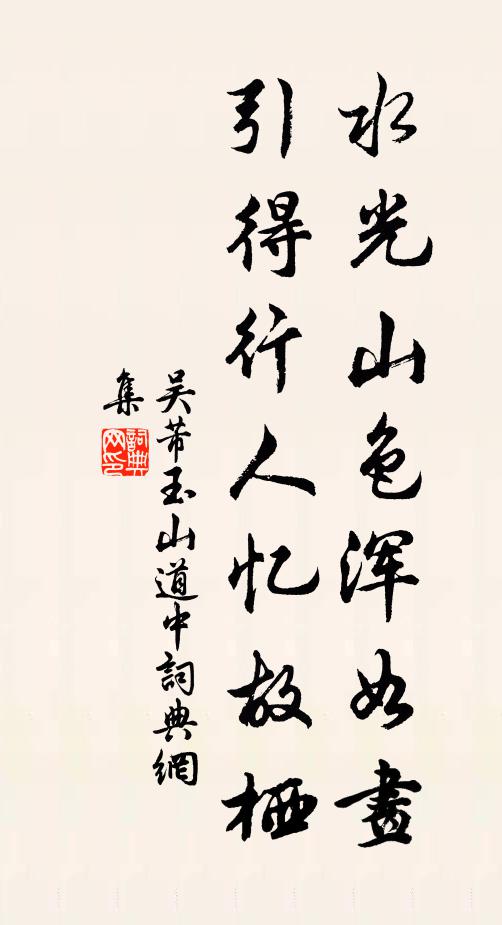 水光山色浑如畫
引得行人忆故栖
吴芾玉山道中詞典網
集
詞典网印